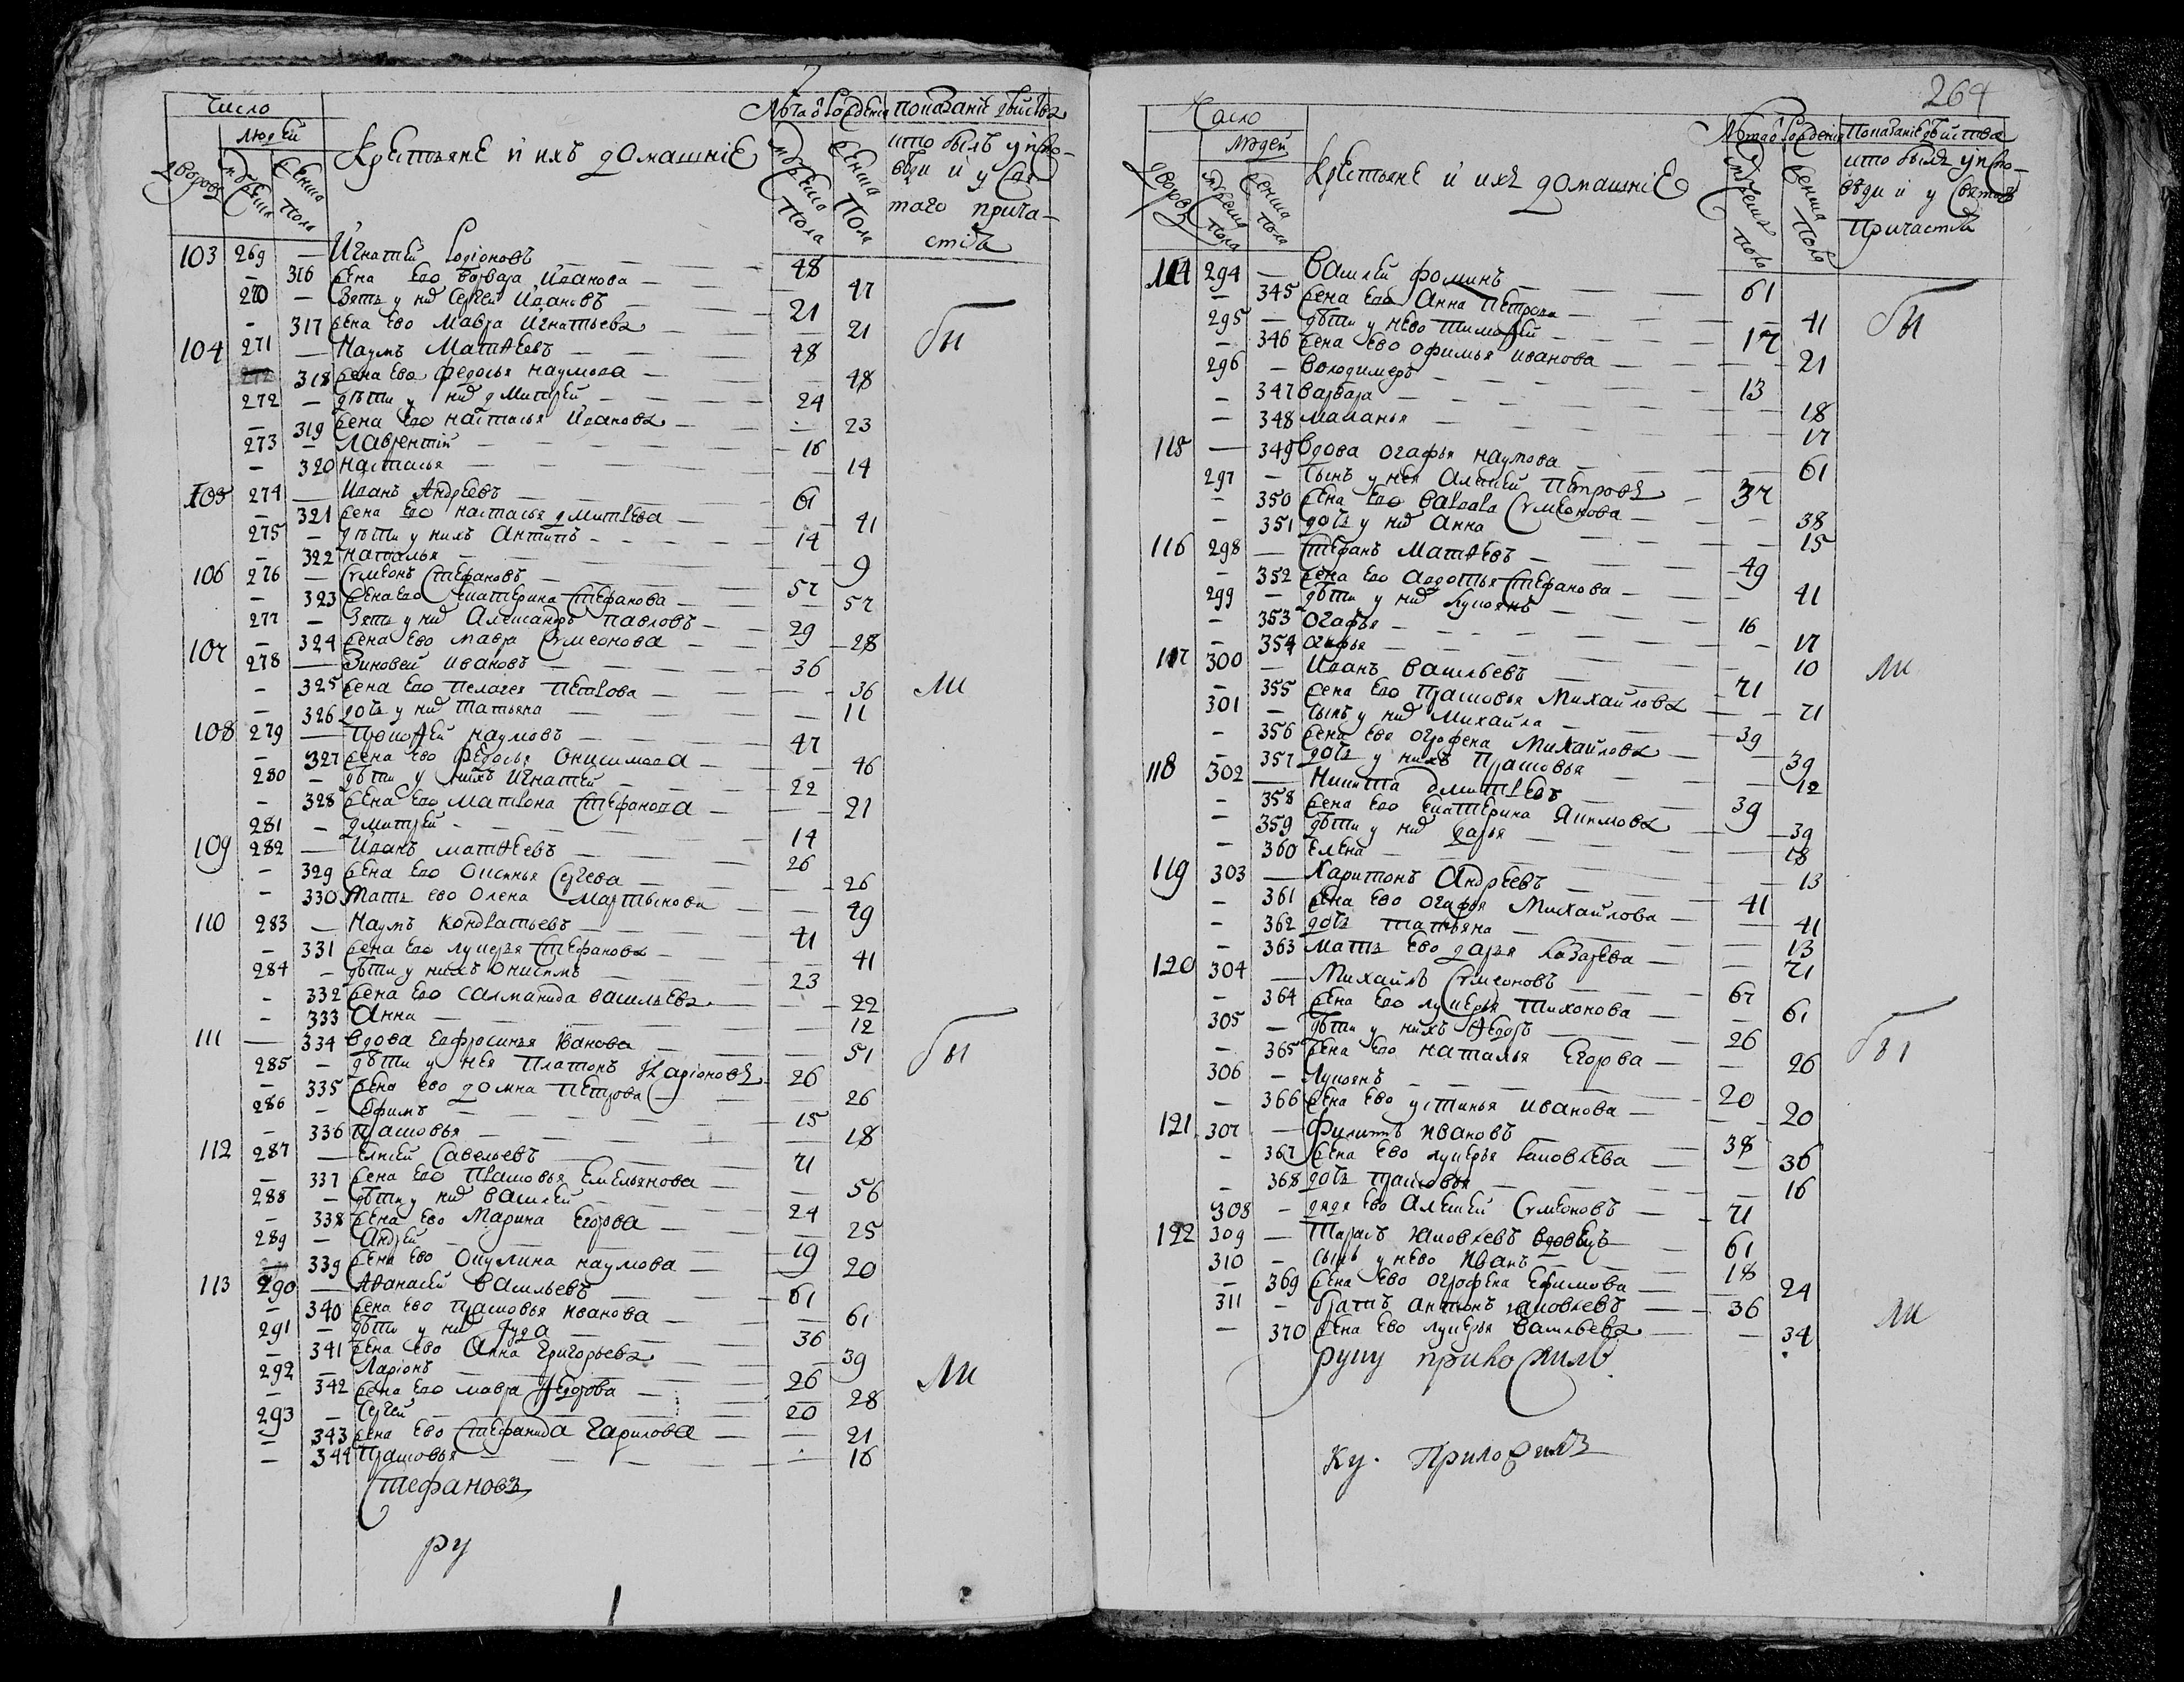 Число
людей
дворовъ
мужеска
женска пола
Крестьяне и ихъ домашние
Лѣта ѿ рождения
мужеска пола
женска пола
показание действа
кто былъ у испо-
веди и у свя-
таго прича-
стия
103 269 — Игнатей Родионовъ 48
— 316 жена ево Варвара Иванова 47
270 — Зять у них Сергей Ивановъ 21
— 317 жена ево Мавра Игнатьева 21
104 271 — Наумъ Матѳеевъ 48 бы
318 жена ево Федосья Наумова 48
272 — дѣти у них Дмитрей 24
— 319 жена ево Настасья Иванова 23
273 — Лаврентий 16
— 320 Настасья 14
105 274 — Иванъ Андреевъ 61
— 321 жена ево Настасья Дмитрева 41
275 — дѣти у нихъ Антипъ 14
— 322 Наталья 9
106 276 — Сѵмеонъ Стефановъ 57
— 323 жена ево Екатерина Стефанова 57
277 — Зять у них Александръ Павловъ 29
— 324 жена ево Мавра Сѵмеонова 28
107 278 — Зиновей Ивановъ 36
— 325 жена ево Пелагея Петрова 36 ли
— 326 дочь у них Татьяна 11
108 279 — Прокоѳей Наумовъ 47
— 327 жена ево Федосья Онисимова 46
280 — дѣти у нихъ Игнатей 22
— 328 жена ево Матрона Стефанова 21
281 — Дмитрей 14
109 282 — Иванъ Матѳеевъ 26
— 329 жена ево Оксинья Сергева 26
— 330 Мать ево Олена Мартынова 49
110 283 — Наумъ Кондратьевъ 41
— 331 жена ево Лукерья Стефанова 41
284 — дѣти у нихъ Онисимъ 23
— 332 жена ево Салманида Васильева 22
— 333 Анна 12
111 — 334 вдова Евфросинья Иванова 51 бы
285 — дѣти у нея Платонъ Иларионовъ 26
— 335 жена ево Домна Петрова 26
286 — Ефимъ 15
— 336 Прасковья 18
112 287 — Елисей Савельевъ 71
— 337 жена ево Прасковья Емельянова 56
288 — дѣти у них Василей 24
— 338 жена ево Марина Егорова 25
289 — Андрей 19
— 339 жена ево Окулина Наумова 20
113 290 — Аѳанасей Васильевъ 61
— 340 жена ево Прасковья Иванова 61
291 — дѣти у них Иуда 36
— 341 жена ево Анна Григорьева 39
292 — Ларионъ 26 ли
— 342 жена ево Мавра Ѳедорова 28
293 — Сергей 20
— 343 жена ево Стефанида Гаврилова 21
— 344 Прасковья 16
Стефановъ
ру
264
Число
людей
дворовъ
мужеска пола
женска пола
Крестьяне и ихъ домашние
Лѣта ѿ рождения
мужеска пола
женска пола
Показание действа
кто былъ у испо-
веди и у святаго
Причастия
114 294 — Василей Фоминъ 61
— 345 жена ево Анна Петрова 41 бы
295 — дѣти у нево Тимоѳей 17
— 346 жена ево Офимья Иванова 21
296 — Володимеръ 13
— 347 Варвара 18
— 348 Маланья 17
115 — 349 Вдова Огафья Наумова 61
297 — сынъ у нея Алексей Петровъ 37
— 350 жена ево Варвара Сѵмеонова 38
— 351 дочь у них Анна 15
116 298 — Стефанъ Матѳеевъ 49
— 352 жена ево Авдотья Стефанова 41
299 — дѣти у них Лукоянъ 16
— 353 Огафья 17
— 354 Агафья 10
117 300 — Иванъ Васильевъ 71 ли
— 355 жена ево Прасковья Михайлова 71
301 — сынъ у них Михайла 39
— 356 жена ево Огрофена Михайлова 39
— 357 дочь у нихъ Прасковья 12
118 302 — Никита Дмитревъ 39
— 358 жена ево Екатерина Якимова 39
— 359 дѣти у них Дарья 18
— 360 Елена 13
119 303 — Харитонъ Андреевъ 41
— 361 жена ево Огафья Михайлова 41
— 362 дочь Татьяна 13
— 363 мать ево Дарья Лазарева 71
120 304 — Михайлъ Сѵмеоновъ 67
— 364 жена ево Лукерья Тихонова 61
305 — дѣти у нихъ Ѳедоръ 26 бы
— 365 жена ево Наталья Егорова 26
306 — Лукоянъ 20
— 366 жена ево Устинья Иванова 20
121 307 — Филипъ Ивановъ 38
— 367 жена ево Лукерья Яковлева 36
— 368 дочь Прасковья 16
308 — дядя ево Алексей Сѵмеоновъ 71
122 309 — Тарасъ Яковлевъ вдовецъ 61
310 — сынъ у нево Иванъ 18
— 369 жена ево Огрофена Ефимова 24
311 — братъ Антонъ Яковлевъ 36 ли
— 370 жена ево Лукерья Васильева 34
руку приложилъ
ку. Приложилъ